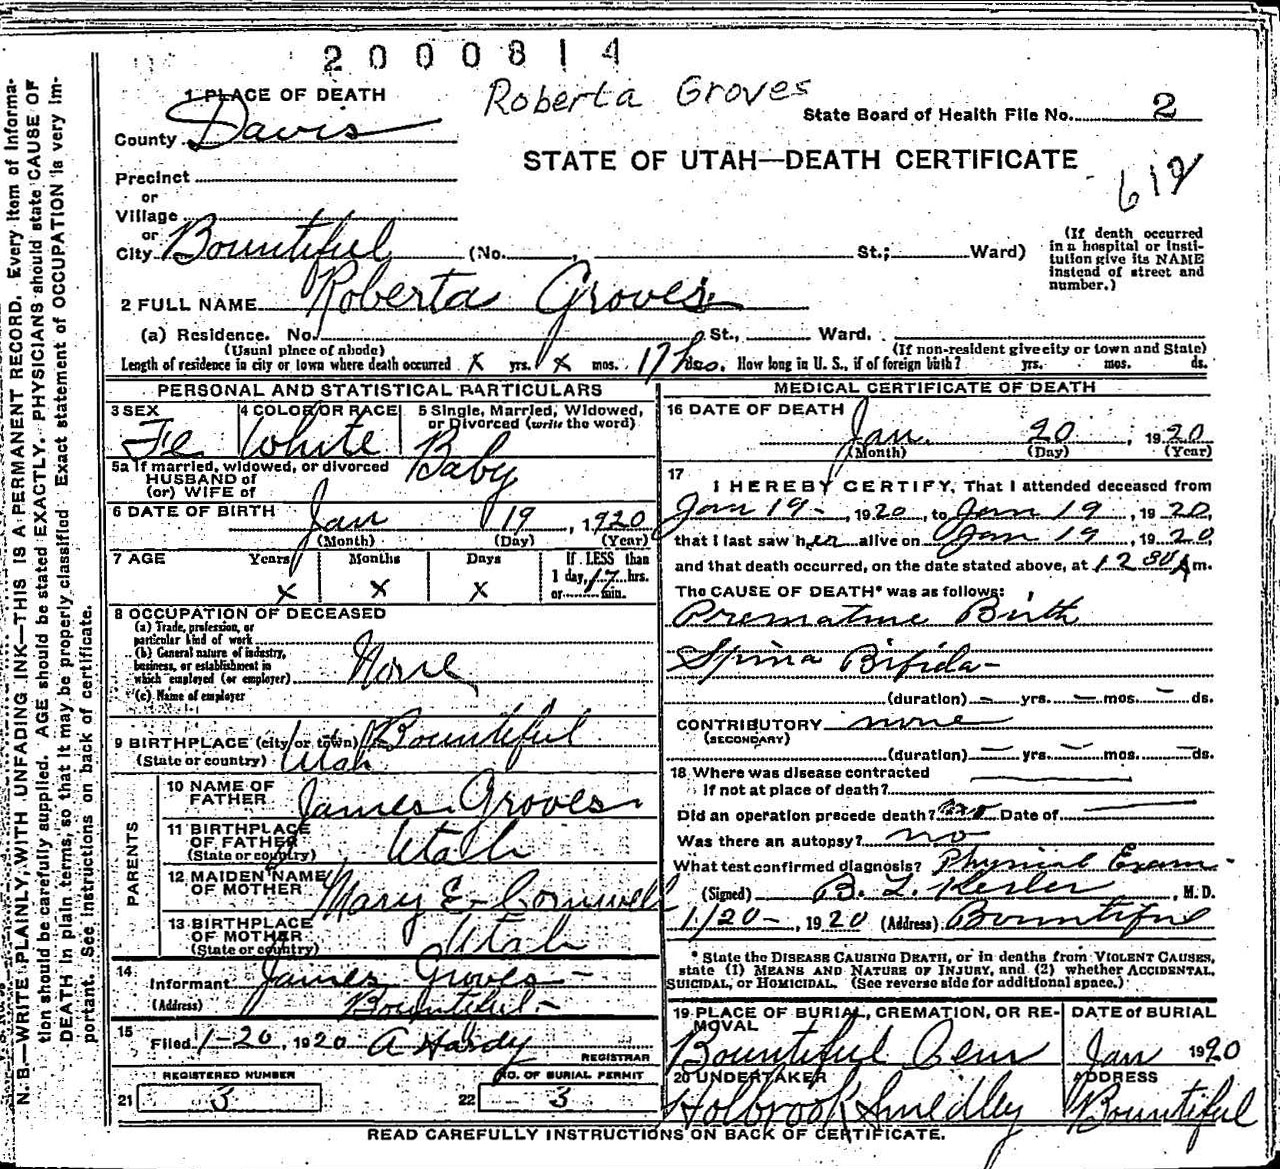 2000814
Roberta Groves
1 PLACE OF DEATH
State Board of Health File No. 2
County Davis
STATE OF UTAH—DEATH CERTIFICATE
612
Precinct
or
Village
or
City Bountiful (No. , St.; Ward)
(If death occurred in a hospital or insti-
tution give its NAME
instead of street and
number.)
2 FULL NAME Roberta Groves
(a) Residence. No. St., Ward.
(Usual place of abode) (If non-resident give city or town and State)
Length of residence in city or town where death occurred x yrs. x mos. 17 hrs. How long in U. S., if of foreign birth? yrs. mos. ds.
PERSONAL AND STATISTICAL PARTICULARS
3 SEX Fe
4 COLOR OR RACE White
5 Single, Married, Widowed,
or Divorced (write the word)
Baby
5a If married, widowed, or divorced
HUSBAND of
(or) WIFE of
6 DATE OF BIRTH Jan 19, 1920
(Month) (Day) (Year)
7 AGE Years Months Days If LESS than
x x x 1 day, 17 hrs.
or min.
8 OCCUPATION OF DECEASED
(a) Trade, profession, or
particular kind of work
(b) General nature of industry,
business, or establishment in
which employed (or employer) None
(c) Name of employer
9 BIRTHPLACE (city or town) Bountiful
(State or country) Utah
PARENTS
10 NAME OF
FATHER James Groves
11 BIRTHPLACE
OF FATHER Utah
(State or country)
12 MAIDEN NAME
OF MOTHER Mary E. Cornwell
13 BIRTHPLACE
OF MOTHER Utah
(State or country)
14 Informant James Groves
(Address) Bountiful
15 Filed 1-20, 1920 A Hardy
REGISTRAR
REGISTERED NUMBER NO. OF BURIAL PERMIT
21 3 22 3
MEDICAL CERTIFICATE OF DEATH
16 DATE OF DEATH
Jan. 20, 1920
(Month) (Day) (Year)
17
I HEREBY CERTIFY, That I attended deceased from
Jan 19-, 1920, to Jan 19, 1920,
that I last saw her alive on Jan 19, 1920,
and that death occurred, on the date stated above, at 12 30 A m.
The CAUSE OF DEATH* was as follows:
Premature Birth
Spina Bifida-
(duration) — yrs. — mos. — ds.
CONTRIBUTORY none
(SECONDARY)
(duration) — yrs. — mos. — ds.
18 Where was disease contracted
If not at place of death?
Did an operation precede death? no Date of
Was there an autopsy? no
What test confirmed diagnosis? Physical Exam-
(Signed) B. L. Kesler, M.D.
1/20-, 1920 (Address) Bountiful
* State the DISEASE CAUSING DEATH, or in deaths from VIOLENT CAUSES,
state (1) MEANS AND NATURE OF INJURY, and (2) whether ACCIDENTAL,
SUICIDAL, or HOMICIDAL. (See reverse side for additional space.)
19 PLACE OF BURIAL, CREMATION, OR RE-
MOVAL DATE of BURIAL
Bountiful Cem Jan 1920
20 UNDERTAKER ADDRESS
Holbrook Smedley Bountiful
READ CAREFULLY INSTRUCTIONS ON BACK OF CERTIFICATE.
N. B.—WRITE PLAINLY, WITH UNFADING INK—THIS IS A PERMANENT RECORD. Every item of informa-
tion should be carefully supplied. AGE should be stated EXACTLY. PHYSICIANS should state CAUSE OF
DEATH in plain terms, so that it may be properly classified. Exact statement of OCCUPATION is very im-
portant. See instructions on back of certificate.